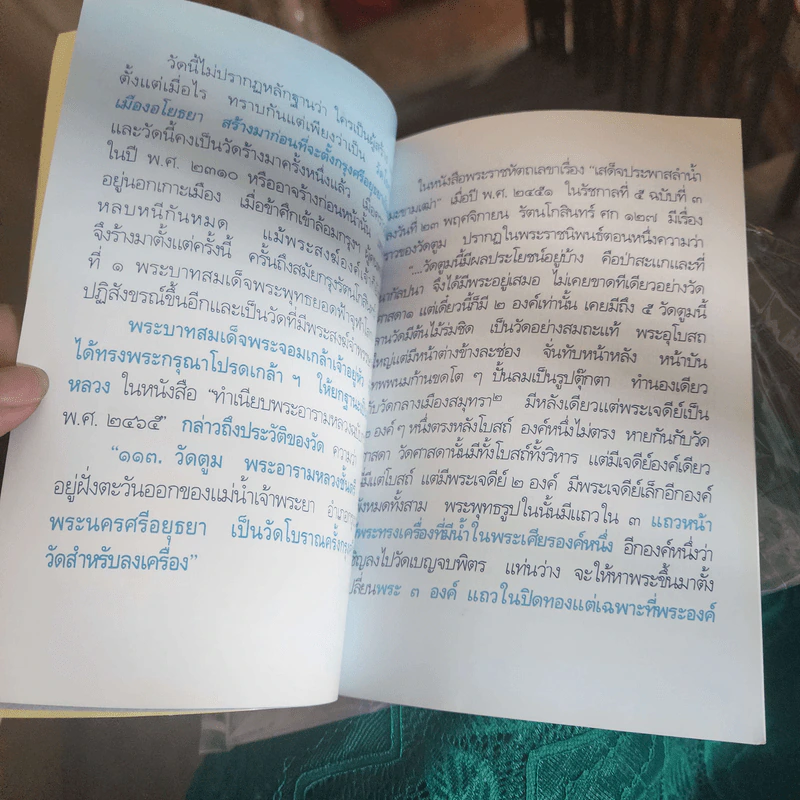 วัดนี้ไม่ปรากฏหลักฐานว่า ใครเป็นผู้สร้าง
ตั้งแต่เมื่อไร ทราบกันแต่เพียงว่าเป็น
เมืองอโยธยา สร้างมาก่อนที่จะตั้งกรุงศรีอยุธยา
และวัดนี้คงเป็นวัดร้างมาครั้งหนึ่งแล้ว เมื่อ
ในปี พ.ศ. ๒๓๑๐ หรืออาจร้างก่อนหน้านั้น
อยู่นอกเกาะเมือง เมื่อข้าศึกเข้าล้อมกรุงฯ
หลบหนีกันหมด แม้พระสงฆ์องค์
จึงร้างมาตั้งแต่ครั้งนี้ ครั้นถึงสมัยกรุงรัตนโกสิน
ที่ ๑ พระบาทสมเด็จพระพุทธยอดฟ้าจุฬาโลก
ปฏิสังขรณ์ขึ้นอีกและเป็นวัดที่มีพระสงฆ์
พระบาทสมเด็จพระจอมเกล้าเจ้าอยู่หัว
ได้ทรงพระกรุณาโปรดเกล้า ฯ ให้ยกฐานะ
หลวง ในหนังสือ “ทำเนียบพระอารามหลวง
พ.ศ. ๒๔๖๕” กล่าวถึงประวัติของวัด ความ
“๑๑๓. วัดตูม พระอารามหลวงชั้นตรี
อยู่ฝั่งตะวันออกของแม่น้ำเจ้าพระยา อำเภอ
พระนครศรีอยุธยา เป็นวัดโบราณครั้งกรุง
วัดสำหรับลงเครื่อง”
ในหนังสือพระราชหัตถเลขาเรื่อง “เสด็จประพาสลำน้ำ
มะขามเฒ่า” เมื่อปี พ.ศ. ๒๔๕๑ ในรัชกาลที่ ๕ ฉบับที่ ๓
ลงวันที่ ๒๓ พฤศจิกายน รัตนโกสินทร์ ศก ๑๒๗ มีเรื่อง
ราวของวัดตูม ปรากฏในพระราชนิพนธ์ตอนหนึ่งความว่า
“....วัดตูมนี้มีผลประโยชน์อยู่บ้าง คือป่าสะแกและที่
นากัลปนา จึงได้มีพระอยู่เสมอ ไม่เคยขาดทีเดียวอย่างวัด
ศาสดา๑ แต่เดี๋ยวนี้ก็มี ๒ องค์เท่านั้น เคยมีถึง ๕ วัดตูมนี้
ฐานวัดมีต้นไม้ร่มชิด เป็นวัดอย่างสมถะแท้ พระอุโบสถ
ใหญ่แต่มีหน้าต่างข้างละช่อง จั่นทับหน้าหลัง หน้าบัน
เทพพนมก้านขดโต ๆ ปั้นลมเป็นรูปตุ๊กตา ทำนองเดียว
กับวัดกลางเมืองสมุทรา๒ มีหลังเดียวแต่พระเจดีย์เป็น
๒ องค์ ๆ หนึ่งตรงหลังโบสถ์ องค์หนึ่งไม่ตรง หายกันกับวัด
ศาสดา วัดศาสดานั้นมีทั้งโบสถ์ทั้งวิหาร แต่มีเจดีย์องค์เดียว
มีแต่โบสถ์ แต่มีพระเจดีย์ ๒ องค์ มีพระเจดีย์เล็กอีกองค์
หมดทั้งสาม พระพุทธรูปในนั้นมีแถวใน ๓ แถวหน้า
พระทรงเครื่องที่มีน้ำในพระเศียรองค์หนึ่ง อีกองค์หนึ่งว่า
เชิญลงไปวัดเบญจบพิตร แท่นว่าง จะให้หาพระขึ้นมาตั้ง
เปลี่ยนพระ ๓ องค์ แถวในปิดทองแต่เฉพาะที่พระองค์